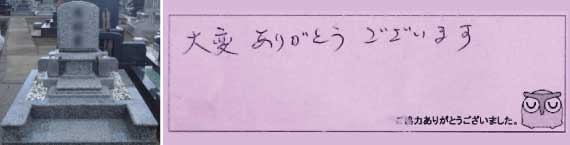 大変 ありがとう ございます
ご協力ありがとうございました。